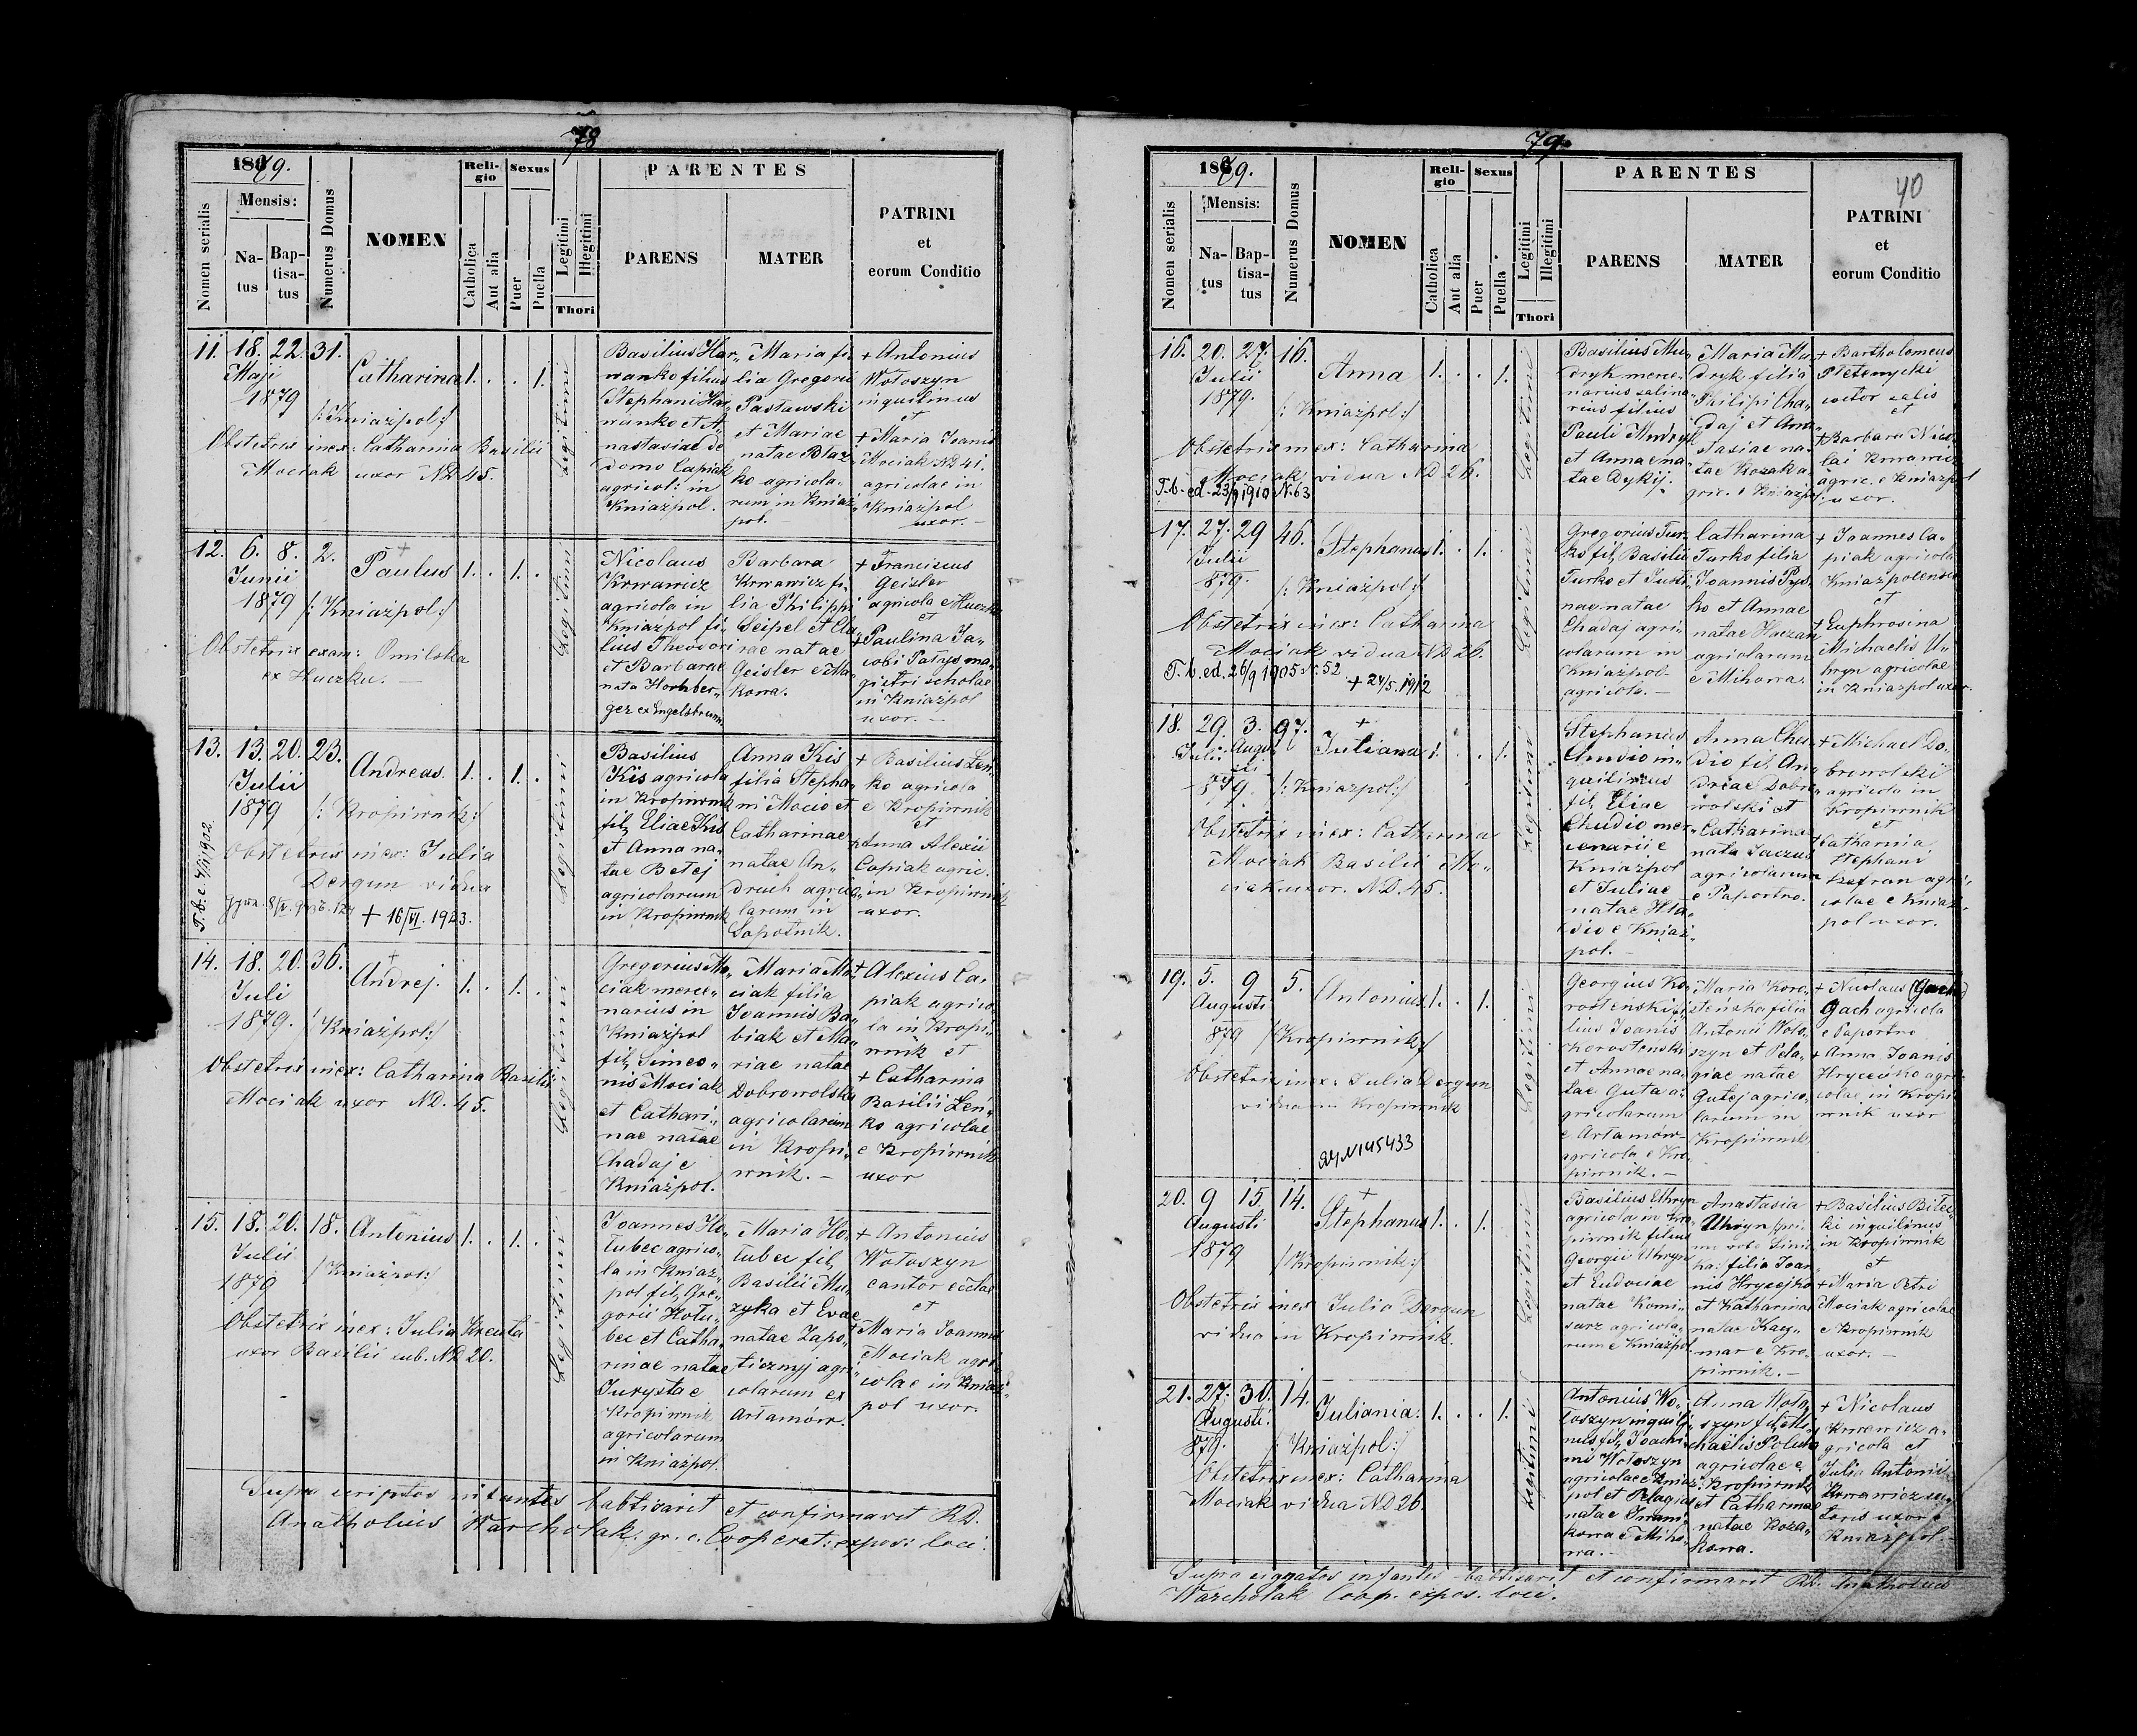 78
1879.
Nomen serialis
Mensis:
Natus
Baptisatus
Numerus Domus
NOMEN
Religio
Catholica
Aut alia
Sexus
Puer
Puella
Legitimi
Illegitimi
Thori
PARENTES
PARENS
MATER
PATRINI
et
eorum Conditio
11. 18. 22. 31.
Maji
1879
Catharina 1. . . 1.
/: Kniażpol :/
Obstetrix inex: Catharina Basilii
Mociak uxor ND 45.
Legitimi
Basilius Har„
wanko filius
Stephani Har„
wanko et A„
nastasiae de
domo Capiak
agricol: in
Kniażpol.
Maria fi„
lia Gregorii
Pasławski
et Mariae
natae Błaz„
ko agricola„
rum in Kniaż„
pol.
+ Antonius
Wołoszyn
inquilinus
et
+ Maria Joanis
Mociak ND 41.
agricolae in
Kniażpol
uxor. –
12. 6. 8. 2.
Junii
1879
+
Paulus 1. . 1. .
/: Kniażpol :/
Obstetrix exam: Omilska
ex Huczku. –
Legitimi
Nicolaus
Krwawicz
agricola in
Kniażpol fi„
lius Theodori
et Barbarae
nata Hornber„
ger ex Engelsbrunn
Barbara
Krwawicz fi„
lia Philippi
Seipel et Cla„
rae natae
Geisler e Ma„
kowa.
+ Franciscus
Geisler
agricola e Huczko
et
+ Paulina Ja„
cobi Patrys ma„
gistri scholae
in Kniażpol
uxor. –
13. 13. 20. 23.
Julii
1879
Andreas. 1. . 1. .
/: Kropiwnik :/
Obstetrix inex: Julia
Dergun vidua
+ 16/VI. 1923.
Legitimi
Basilius
Kis agricola
in Kropiwnik
fil. Eliae Kis
et Anna na„
tae Betej
agricolarum
in Kropiwnik
Anna Kis
filia Stepha„
ni Mocio et
Catharinae
natae An„
druch agrico„
larum in
Sopotnik.
+ Basilius Leń„
ko agricola
e Kropiwnik
et
+ Anna Alexii
Capiak agric.
in Kropiwnik
uxor.
14. 18. 20. 36.
Juli
1879.
+
Andrej. 1. . 1. .
/: Kniażpol :/
Obstetrix inex: Catharina Basilii
Mociak uxor ND. 45.
Legitimi
Gregorius Mo„
ciak merce„
narius in
Kniażpol
fil. Simeo„
nis Mociak
et Cathari„
nae natae
Chadaj e
Kniażpol.
Maria Mo„
ciak filia
Joannis Ba„
biak et Ma„
riae natae
Dobrowolska
agricolarum
in Kropi„
wnik. –
+ Alexius Ca„
piak agrico„
la in Kropi„
wnik et
+ Catharina
Basilii Leń„
ko agricolae
e Kropiwnik
uxor
15. 18. 20. 18.
Julii
1879
Antonius 1. . 1. .
/: Kniażpol :/
Obstetrix inex: Julia
uxor Basilii sub. ND 20.
Legitimi
Joannes Ho„
łubec agrico„
la in Kniaż„
pol fil. Gre„
gorii Hołu„
bec et Catha„
rinae natae
Jurysta e
Kropiwnik
agricolarum
in Kniażpol.
Maria Ho„
łubec fil.
Basilii Mu„
zyka et Evae
natae Zapo„
ticznyj agri„
colarum ex
Artamów.
+ Antonius
Wołoszyn
cantor ecclae
et
+ Maria Joannis
Mociak agri„
colae in Kniaż„
pol uxor.
Supra scriptos infantes babtisavit et confirmavit RD.
Anatholius Warchołak. gr. c. Cooperat: expos: loci.
79.
40
1879.
Nomen serialis
Mensis:
Natus
Baptisatus
Numerus Domus
NOMEN
Religio
Catholica
Aut alia
Sexus
Puer
Puella
Legitimi
Illegitimi
Thori
PARENTES
PARENS
MATER
PATRINI
et
eorum Conditio
16. 20. 27. 16.
Julii
1879.
Anna 1. . . 1.
/: Kniażpol :/
Obstetrix inex: Catharina
Mociak vidua ND 26.
T.b. ed. 23/9 1910 N. 63
Legitimi
Basilius Mu„
dryk merce„
narius salina„
rius filius
Pauli Mudryk
et Annae na„
tae Dykij.
Maria Mu„
dryk filia
Philipi Cha„
daj et Ana„
stasiae na„
tae Kozak a„
gric. e Kniażpol
+ Bartholomeus
coctor salis
et
+ Barbara Nico„
lai Krwawicz
agric. e Kniażpol
uxor.
17. 27. 29 46.
Julii
879.
Stephanus 1. . 1. .
/: Kniażpol :/
Obstetrix inex: Catharina
Mociak vidua ND 26.
T.b. ed. 26/9 1905 N. 52
+ 24/5. 1912
Legitimi
Gregorius Tur„
ko fil. Basilii
Turko et Justi„
nae natae
Chadaj agri„
colarum in
Kniażpol
agricola. –
Catharina
Turko filia
Joannis Pys„
ko et Annae
natae Haczan
agricolarum
e Mihowa.
+ Joannes Ca„
piak agricola
Kniażpolensis
et
+ Euphrosina
Michaelis U„
hryn agricolae
in Kniażpol uxor.
18. 29. 3. 97.
Julii Augusti
879.
+
Juliana 1. . . 1.
/: Kniażpol :/
Obstetrix inex: Catharina
Mociak Basilii Mo„
ciak uxor. ND. 45.
Legitimi
Stephanus
Chudio in„
quilinus
fil. Eliae
Chudio mer„
cenarii e
Kniażpol
et Juliae
natae Hła„
dio e Kniaż„
pol. –
Anna Chu„
dio fil. An„
dreae Dobro„
wolski et
Catharina
nata Jaczus
agricolarum
e Paportno.
+ Michael Do„
browolski
agricola in
Kropiwnik
et
+ Catharina
Stephani
agri„
colae e Kniaż„
pol uxor.
19. 5. 9 5.
Augusti
879
Antonius 1. . 1.
/: Kropiwnik :/
Obstetrix inex: Julia Dergun
vidua in Kropiwnik
Legitimi
Georgius Ko„
rosteński fi„
lius Joanis
Korostenski
et Annae na„
tae Guta a„
gricolarum
e Artamów
agricola e Kro„
piwnik. –
Maria Koro„
steńska filia
Antonii Woło„
szyn et Pela„
giae natae
Gutej agrico„
larum in
Kropiwnik
+ Nicolaus
Gach agricola
e Paportno
+ Anna Joanis
Hryceńko agri„
colae in Kropi„
wnik uxor
20. 9 15. 14.
Augusti
1879
+
Stephanus 1. . 1.
/: Kropiwnik :/
Obstetrix inex Julia Dergun
vidua in Kropiwnik.
Legitimi
Basilius Uhryn
agricola in Kro„
piwnik filius
Georgii Uhryn
et Eudociae
natae Komi„
sarz agricola„
rum e Kniażpol
Anastasia
Uhryn
filia Joan„
nis Hrycejko
et Katharinae
natae Kacz„
mar e Kro„
piwnik. –
+ Basilius Bilec„
ki inquilinus
in Kropiwnik
et
+ Maria Petri
Mociak agricolae
e Kropiwnik
uxor. –
21. 27. 30. 14.
Augusti
879.
Juliania. 1. . . 1.
/: Kniażpol :/
Obstetrix inex: Catharina
Mociak vidua ND 26.
Legitimi
Antonius Wo„
łoszyn inquili„
nus fil. Joachi„
mi Wołoszyn
agricolae e Kniaż„
pol et Pelagiae
natae Iwani„
kowa e Miho„
wa. –
Anna Woło„
szyn fil. Mi„
chaelis Poluha
agricolae e
Kropiwnik
et Catharinae
natae Koza„
kowa.
+ Nicolaus
Krwawicz a„
gricola et
Julia Antonii
Krwawicz
uxor e
Kniażpol. –
Supra signatos infantes babtisavit et confirmavit RD. Anatholius
Warchołak Coop. expos. loci.